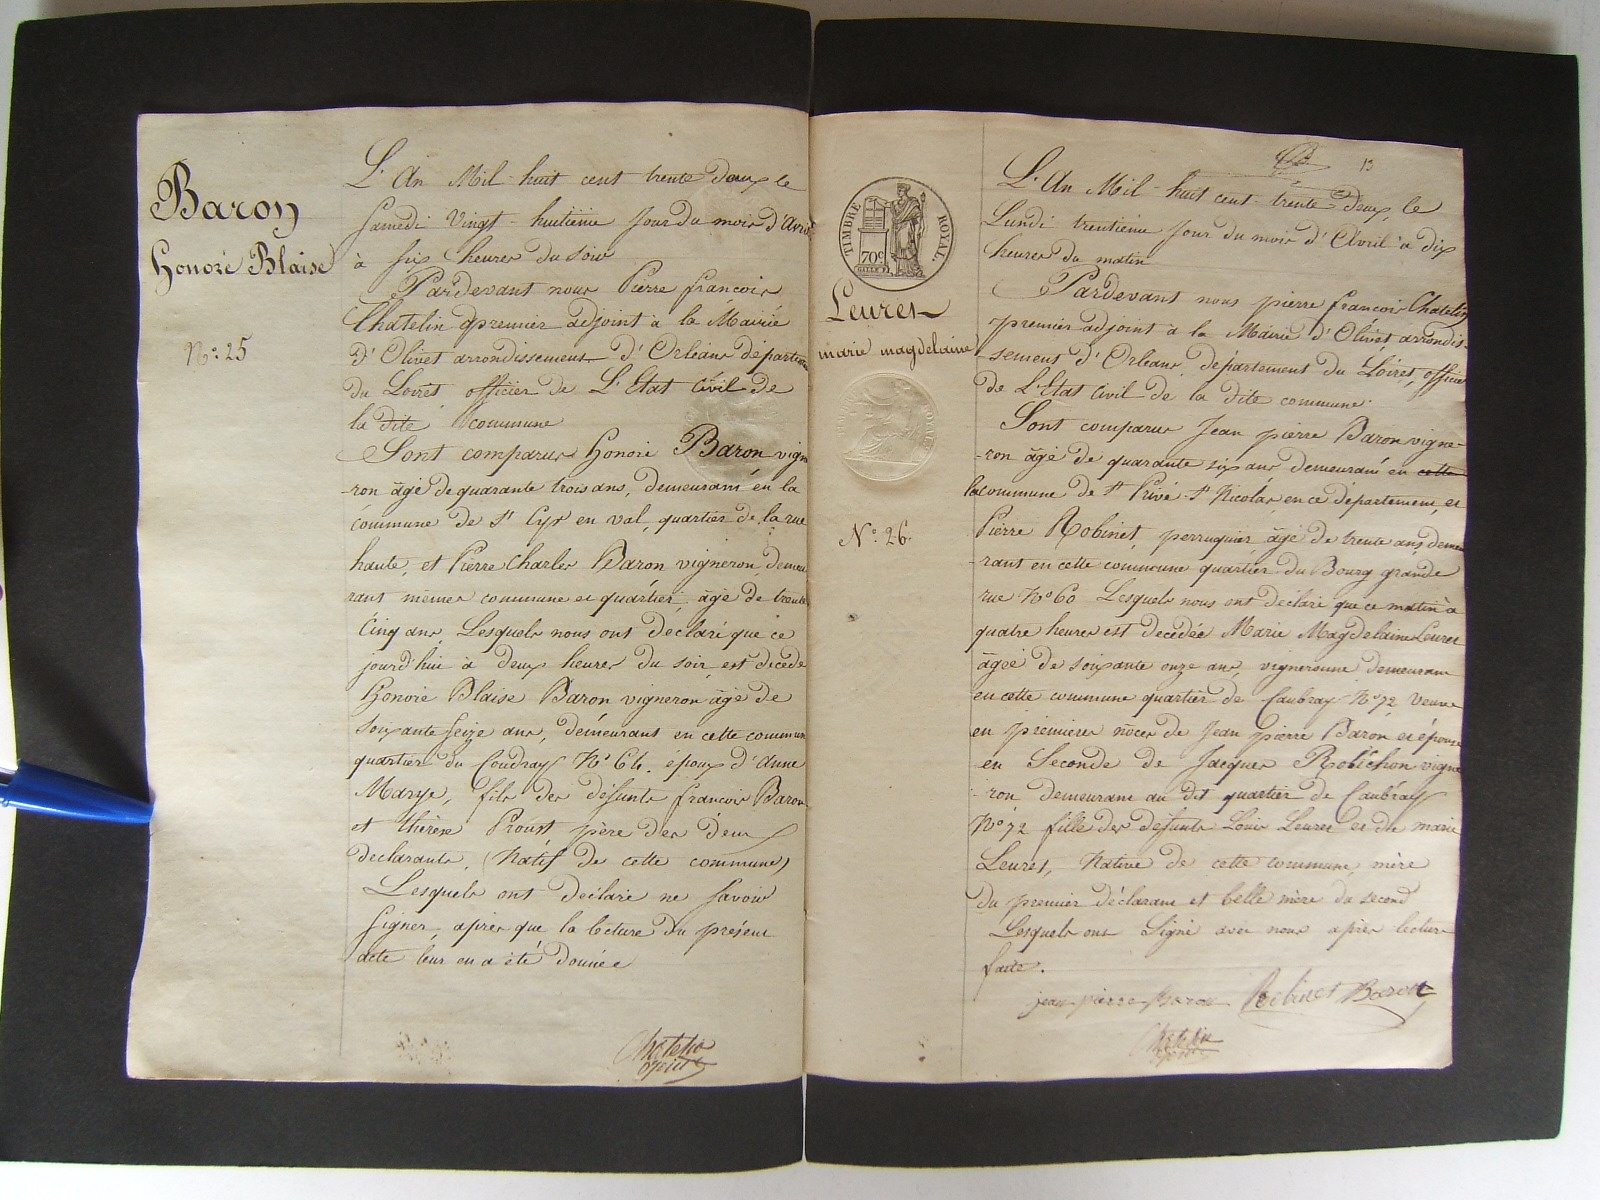 Baron
Honoré Blaise
N°: 25
L'An Mil huit cent trente deux le
Samedi Vingt-huitième Jour du mois d'Avril
à six heures du soir
Pardevant nous Pierre françois
Chatelin premier adjoint à la Mairie
D'Olivet arrondissement D'Orléans départem
du Loiret officier de L'Etat civil de
la dite commune
Sont comparus honoré Baron vign
-ron âgé de quarante trois ans, demeurant en la
commune de St Cyr en val, quartier de la rue
haute, et Pierre Charles Baron vigneron, demeu
rant mêmes commune et quartier, âgé de trente
Cinq ans, Lesquels nous ont déclaré que ce
jourd'hui à deux heures du soir, est décédé
honoré Blaise Baron vigneron âgé de
soixante seize ans, demeurant en cette commune
quartier du Coudray N° 64. époux d'Anne
Marye, fils des défunts françois Baron
et thérèse Proust père des deux
déclarants, (Natif de cette commune)
Lesquels ont déclaré ne savoir
signer, après que la lecture du présent
acte leur en a été donnée
Chatelin
adjoint
13
TIMBRE ROYAL
70c
Leuret
marie magdelaine
N°: 26.
L'An Mil-huit cent-trente deux, le
Lundi trentième jour du mois d'Avril à dix
heures du matin
Pardevant nous pierre françois Chatelin
premier adjoint à la Mairie d'Olivet arrondis-
-sement d'Orléans, département du Loiret, officier
de L'Etat Civil de la dite commune.
Sont comparus Jean pierre Baron vigne-
-ron âgé de quarante six ans demeurant en cette
la commune de St Privé-St Nicolas, en ce département, et
Pierre Robinet, perruquier âgé de trente ans demeu
-rant en cette commune quartier du Bourg grande
rue N° 60 Lesquels nous ont déclaré que ce matin à
quatre heures est décédée Marie Magdelaine Leuret
âgée de soixante onze ans, vigneronne demeurant
en cette commune quartier de Caubray N° 72 Veuve
en premières nôces de Jean pierre Baron et épouse
en Seconde de Jacques Robichon vigne
-ron demeurant au dit quartier de Caubray
N° 72 fille des défunts Louis Leuret et de marie
Leuret, Native de cette commune, mère
du premier déclarant et belle mère du second
Lesquels ont Signé avec nous après lecture
faite.
jean-pierre-Baron Robinet Baron
Chatelin
adjoint